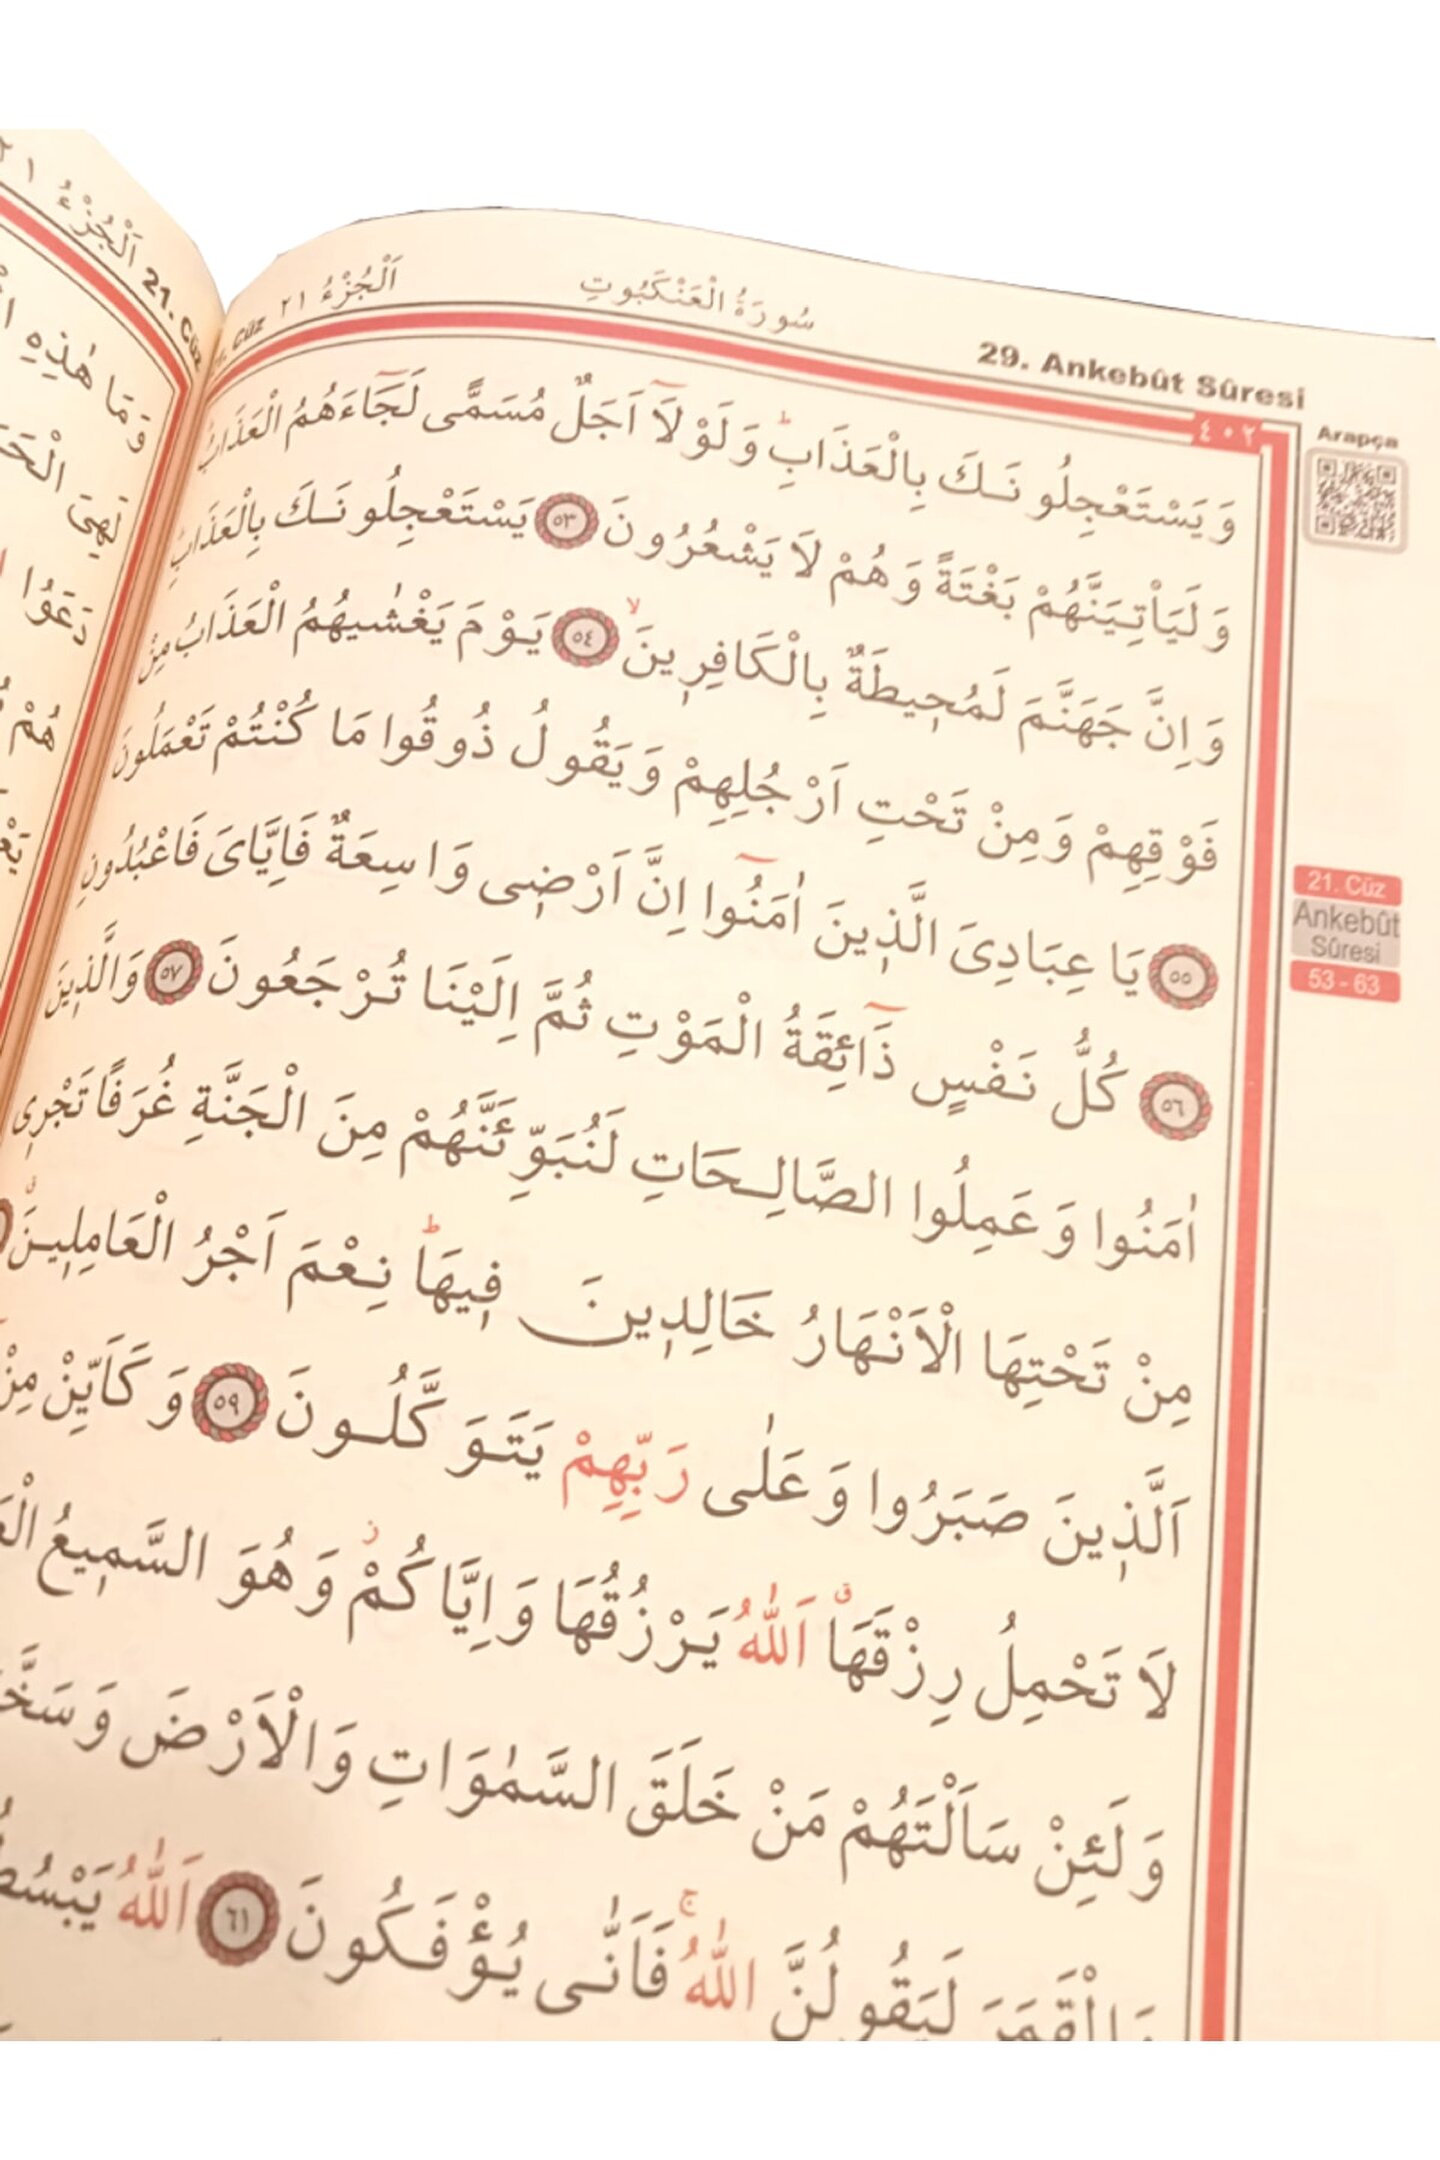 اَلْجُزْءُ ٢١
21. Cüz
وَمَا هٰذِهِ
لَهِيَ
دَعَوُا
هُمْ
29. Ankebût Sûresi
سُورَةُ الْعَنْكَبُوتِ
اَلْجُزْءُ ٢١
Cüz
٤٠٢
Arapça
وَيَسْتَعْجِلُونَكَ بِالْعَذَابِۜ وَلَوْلَٓا اَجَلٌ مُسَمًّى لَجَٓاءَهُمُ الْعَذَابُ
وَلَيَأْتِيَنَّهُمْ بَغْتَةً وَهُمْ لَا يَشْعُرُونَ ﴿٥٣﴾ يَسْتَعْجِلُونَكَ بِالْعَذَابِ
وَاِنَّ جَهَنَّمَ لَمُح۪يطَةٌ بِالْكَافِر۪ينَۙ ﴿٥٤﴾ يَوْمَ يَغْشٰيهُمُ الْعَذَابُ مِنْ
فَوْقِهِمْ وَمِنْ تَحْتِ اَرْجُلِهِمْ وَيَقُولُ ذُوقُوا مَا كُنْتُمْ تَعْمَلُونَ
﴿٥٥﴾ يَا عِبَادِيَ الَّذ۪ينَ اٰمَنُٓوا اِنَّ اَرْض۪ي وَاسِعَةٌ فَاِيَّايَ فَاعْبُدُونِ
﴿٥٦﴾ كُلُّ نَفْسٍ ذَٓائِقَةُ الْمَوْتِ ثُمَّ اِلَيْنَا تُرْجَعُونَ ﴿٥٧﴾ وَالَّذ۪ينَ
اٰمَنُوا وَعَمِلُوا الصَّالِحَاتِ لَنُبَوِّئَنَّهُمْ مِنَ الْجَنَّةِ غُرَفًا تَجْر۪ي
مِنْ تَحْتِهَا الْاَنْهَارُ خَالِد۪ينَ ف۪يهَاۜ نِعْمَ اَجْرُ الْعَامِل۪ينَۗ
اَلَّذ۪ينَ صَبَرُوا وَعَلٰى رَبِّهِمْ يَتَوَكَّلُونَ ﴿٥٩﴾ وَكَاَيِّنْ مِنْ
لَا تَحْمِلُ رِزْقَهَاۗ اَللّٰهُ يَرْزُقُهَا وَاِيَّاكُمْۘ وَهُوَ السَّم۪يعُ
وَلَئِنْ سَاَلْتَهُمْ مَنْ خَلَقَ السَّمٰوَاتِ وَالْاَرْضَ وَسَخَّ
وَالْقَمَرَ لَيَقُولُنَّ اللّٰهُۚ فَاَنّٰى يُؤْفَكُونَ ﴿٦١﴾ اَللّٰهُ يَبْسُطُ
21. Cüz
Ankebût
Sûresi
53 - 63